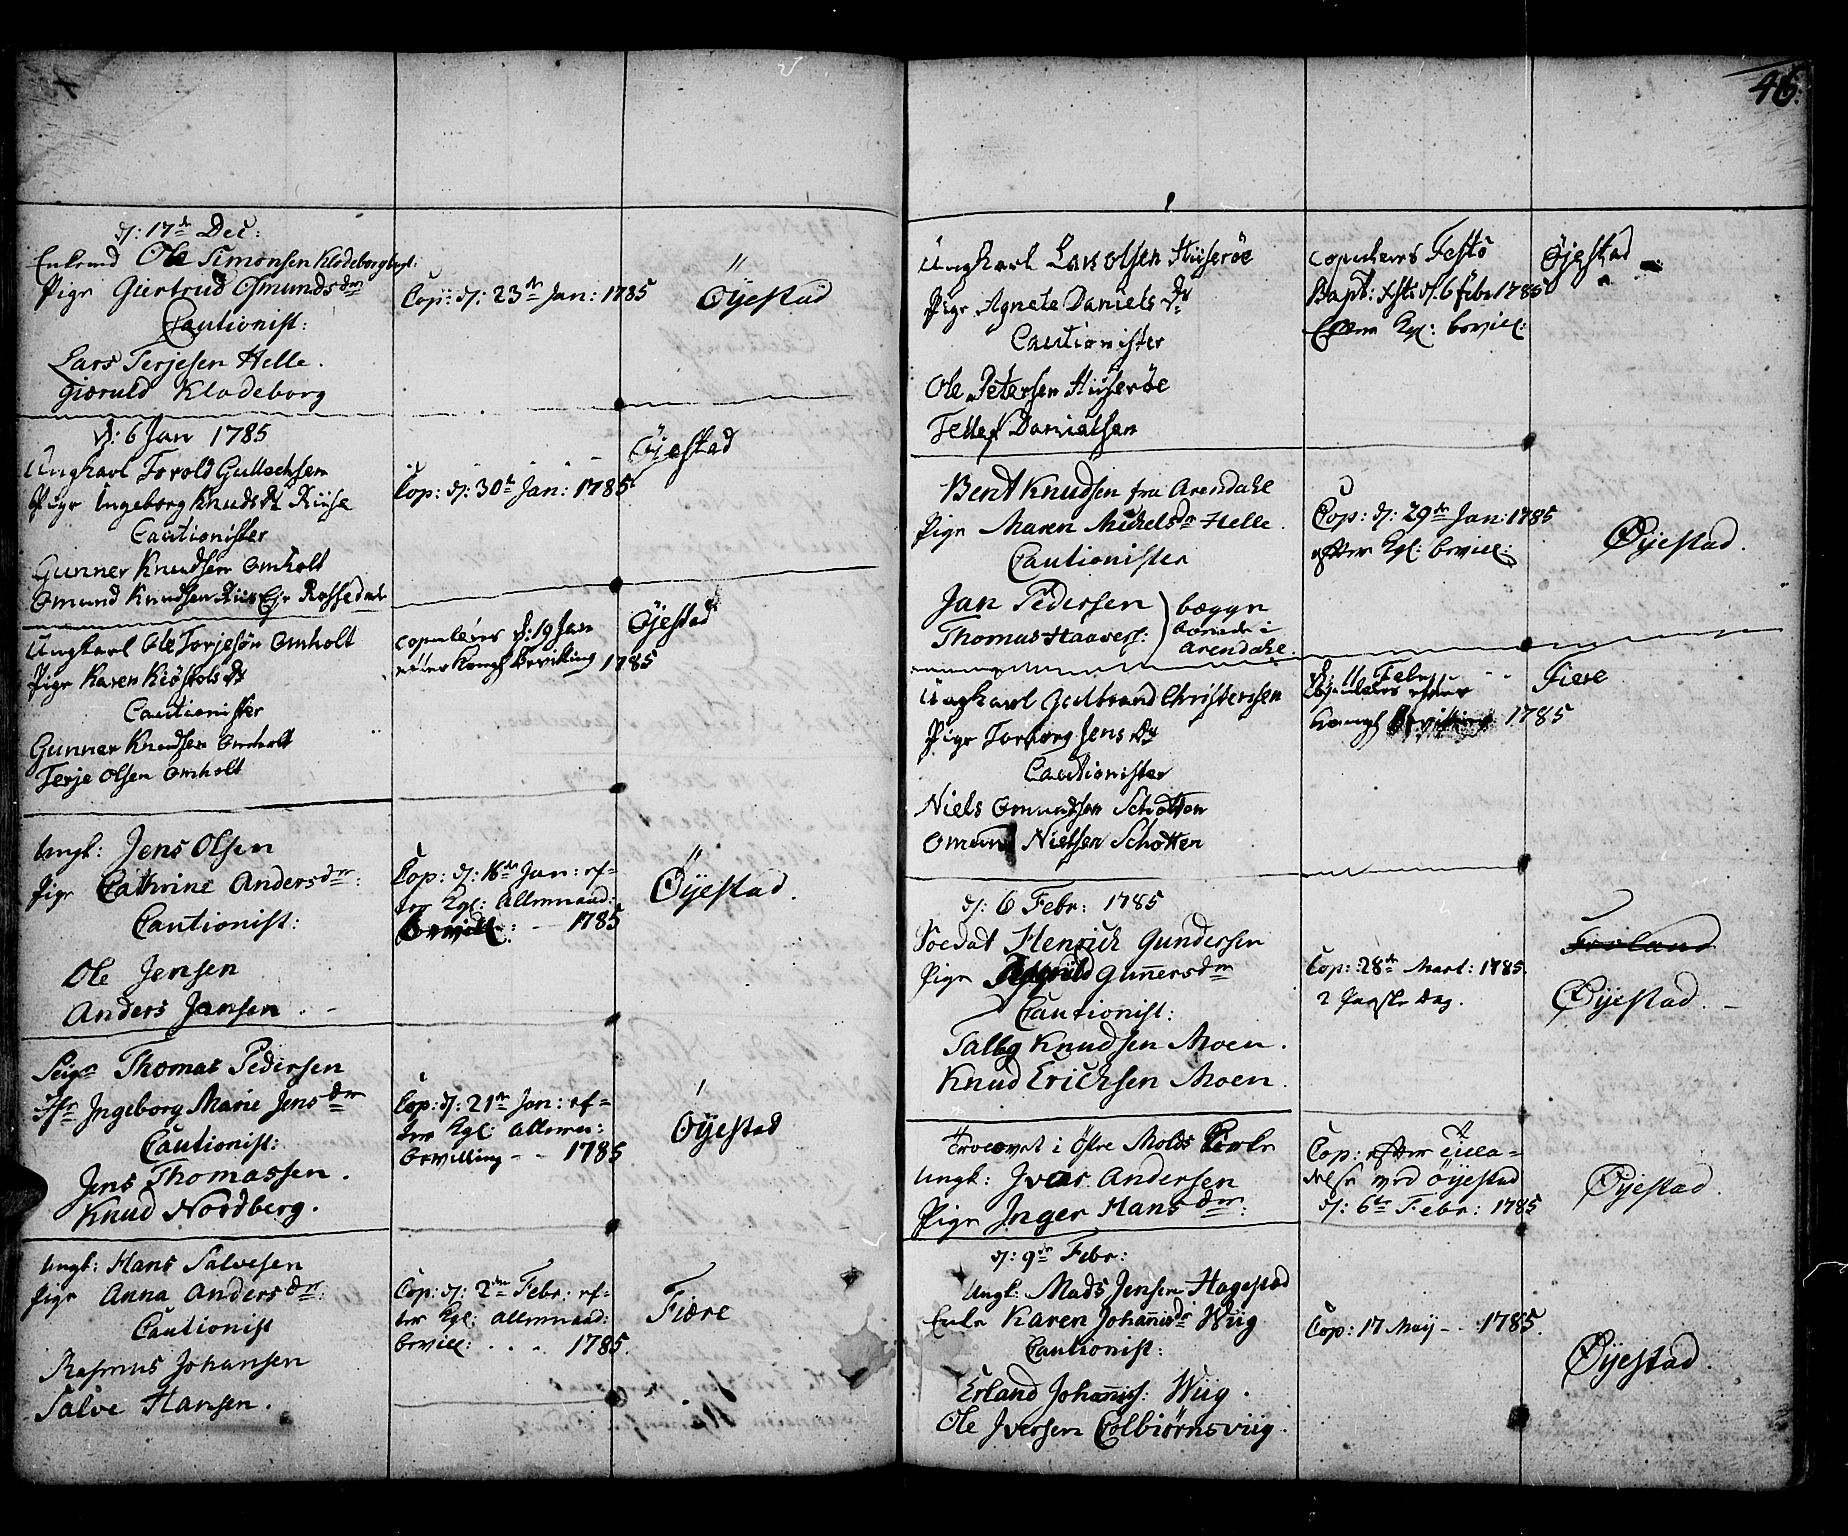 46.
d: 17de Dec:
Enkemd Ole Simonsen Klodeborg
Pige Giertrud Osmundsdtr
Cautionist:
Lars Terjesen Helle.
Giøruld Klodeborg
Cop: d: 23de Jan: 1785
Öyestad
d: 6 Jan 1785
Ungkarl Torold Gullechsen
Pige Ingeborg Knudsdtr Riise
Cautionister
Gunner Knudsen Omholt
Omund Knudsen Rossedal
Cop: d: 30te Jan: 1785
Öjestad
Ungkarl Ole Torjesön Omholt
Pige Karen Kiöstolsdtr
Cautionister
Gunner Knudsen Omholt
Terje Olsen Omholt
copuleres d: 19 Jan
efter Kongl Bevilling 1785
Öjestad
Ungk: Jens Olsen
Pige Cathrine Andersdtr:
Cautionist:
Ole Jensen
Anders Jansen
Cop: d: 18de Jan: ef-
ter Kgl: Allernaad:
bevill: - 1785
Öyestad.
Seigr Thomas Pedersen
Jfr Ingeborg Marie Jensdtr
Cautionist:
Jens Thomassen.
Knud Nordberg.
Cop: d: 21de Jan: ef-
ter Kgl: Allernaa:
bevilling - - 1785
Öyestad
Ungk: Hans Salvesen
Pige Anna Andersdtr:
Cautionist
Rasmus Johansen
Salve Hansen.
Cop: d: 2den Febr: ef-
ter Kgl: Allernaad:
bevill: . . . 1785.
Fiære
Ungkarl Lars Olsen Hiiseröe
Pige Agnete Danielsdtr
Cautionister
Ole Petersen Hiiseröe
Tellef Danielsen
copuleres Festo
d: 6 febr 1785
Efter Kgl: bevill:
Öjestad
Bent Knudsen fra Arendahl
Pige Maren Michelsdtr Helle.
Cautionister
Jan Pedersen
Thomas Haavers:
begge
boende i
Arendahl.
Cop: d: 29de Jan: 1785
efter Kgl: bevill:
Öyestad.
Ungkarl Gulbrand Christensen
Pige Torborg Jensdtr
Cautionister
Niels Omundsen Schotten
Omund Nielsen Schotten
d: 11 Febr
Copuleres efter
Kongl Bevilling 1785
Fiere
d: 6 Febr: 1785
Soldat Henrich Gundersen
Pige Gunnersdtr
Cautionist:
Knudsen Moen.
Knud Erichsen Moen.
Cop: 28de Mart: 1785.
2 Paaske Dag.
Froland
Öyestad. -
Troelovet i Östre Molds Kirke
Ungk: Iver Andersen
Pige Inger Hansdtr:
Cop: efter
ved Öyestad
d: 6te Febr: 1785
Öyestad.
d: 9de Febr:
Ungk: Mads Jensen Hagestad
Enke Karen Johannisdr Wiig
Cautionist:
Erland Johannis: Wiig.
Ole Iversen Colbiörnsviig.
Cop: 17 Maij - . 1785.
Öyestad.